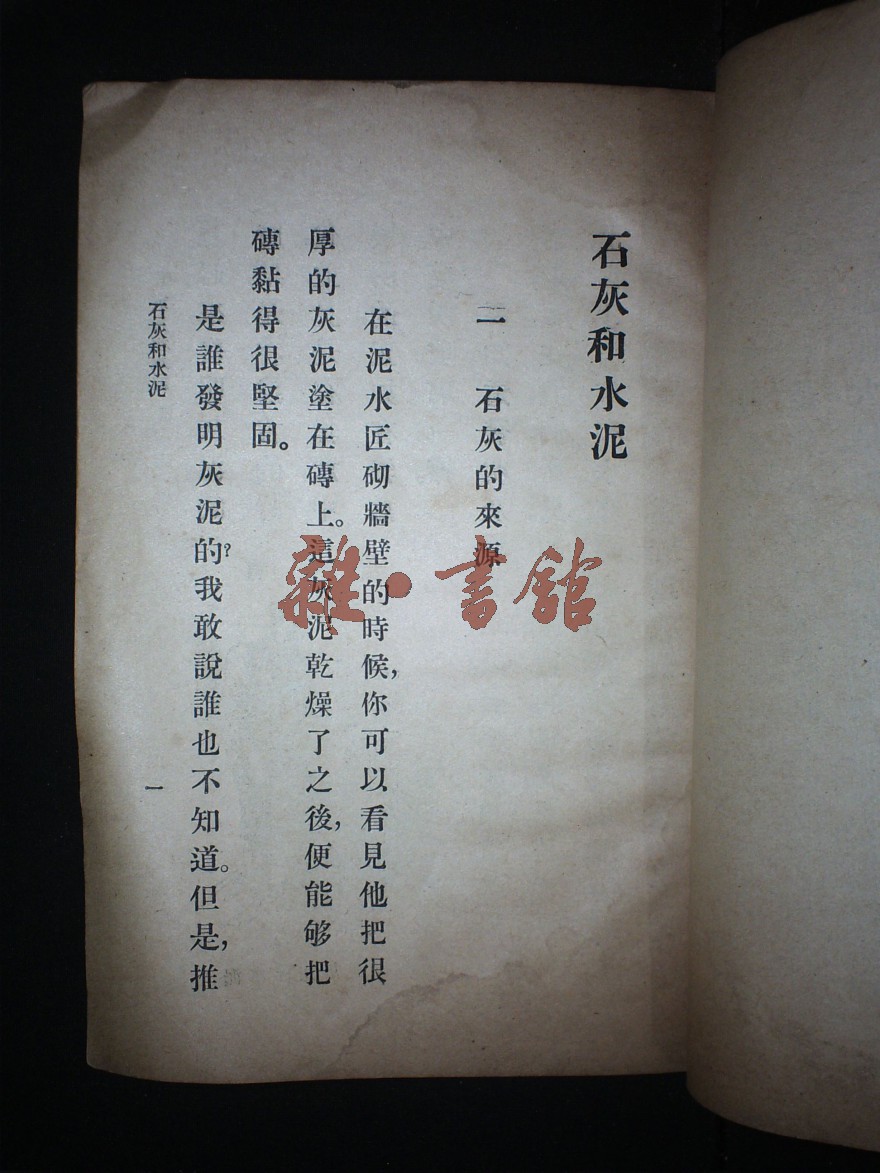 石灰和水泥
一　石灰的來源
在泥水匠砌牆壁的時候，你可以看見他把很
厚的灰泥塗在磚上。這灰泥乾燥了之後，便能够把
磚黏得很堅固。
是誰發明灰泥的？我敢說誰也不知道。但是，推
石灰和水泥
一
雜·書館